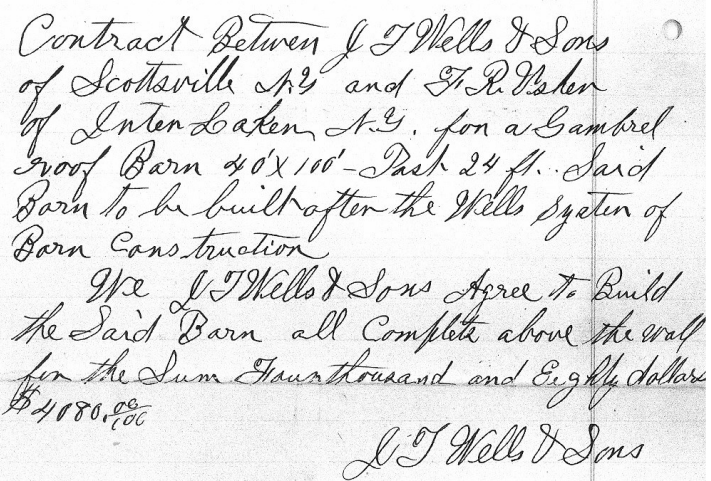 Contract Betwen J T Wells & Sons
of Scottsville N.Y and F. R. Usher
of InterLaken, N.Y. for a Gambrel
roof Barn 40'X100' - Post 24 ft. Said
Barn to be built after the Wells System of
Barn Construction
We J T Wells & Sons Agree to Build
the Said Barn all Complete above the wall
for the Sum Fourthousand and Eighty dollars
$4080.00/100
J T Wells & Sons